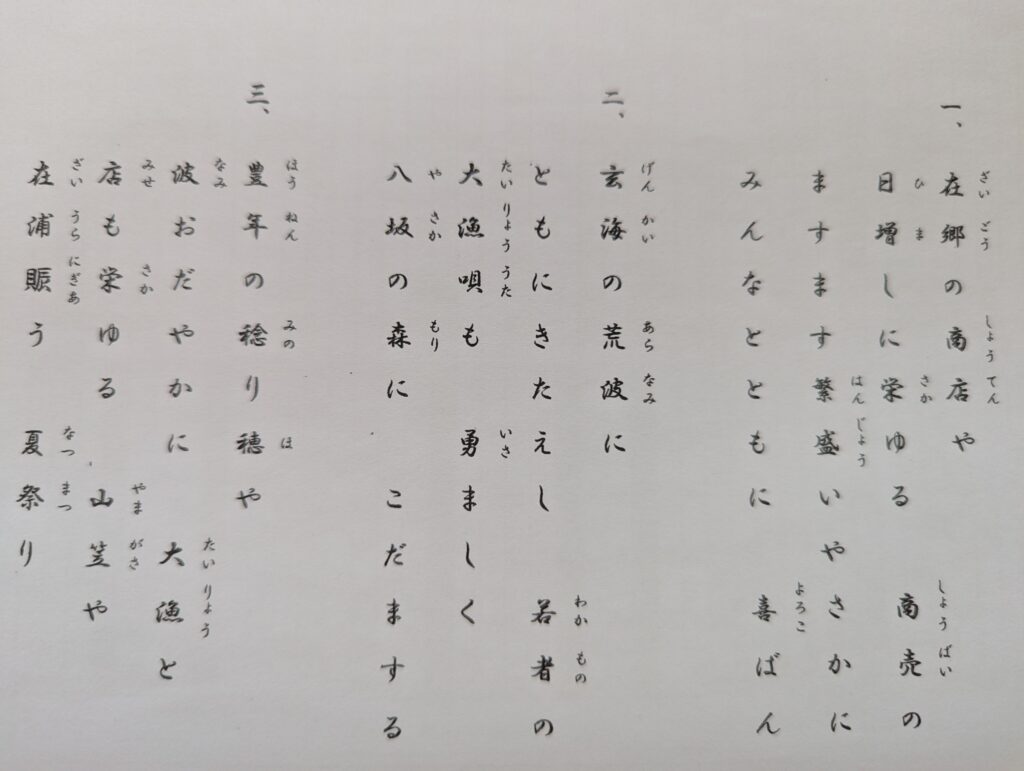 一、
在郷の商店や
日増しに栄ゆる 商売の
ますます繁盛いやさかに
みんなとともに 喜ばん
二、
玄海の荒波に
ともにきたえし 若者の
大漁唄も 勇ましく
八坂の森に こだまする
三、
豊年の稔り穂や
波おだやかに 大漁と
店も栄ゆる 山笠や
在浦賑う 夏祭り